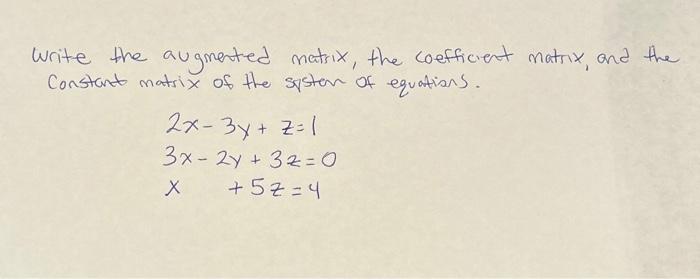 Write the augmented matrix, the coefficient matrix, and the
Constant matrix of the system of equations.
2x - 3y + z = 1
3x - 2y + 3z = 0
x + 5z = 4